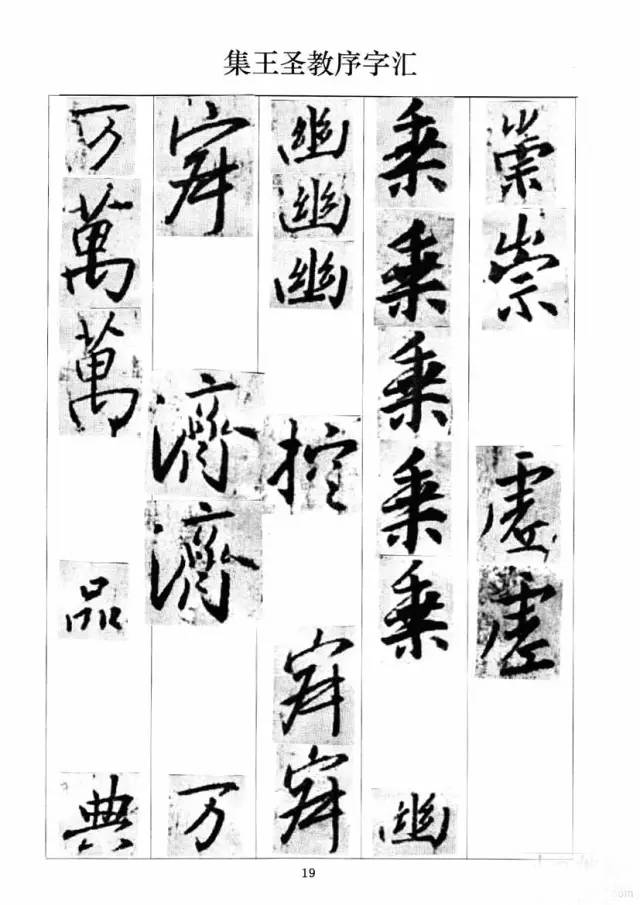 集王圣教序字汇
崇崇虚虚
乘乘乘乘乘幽
幽幽幽控寂寂
寂濟濟万
万萬萬品典
19